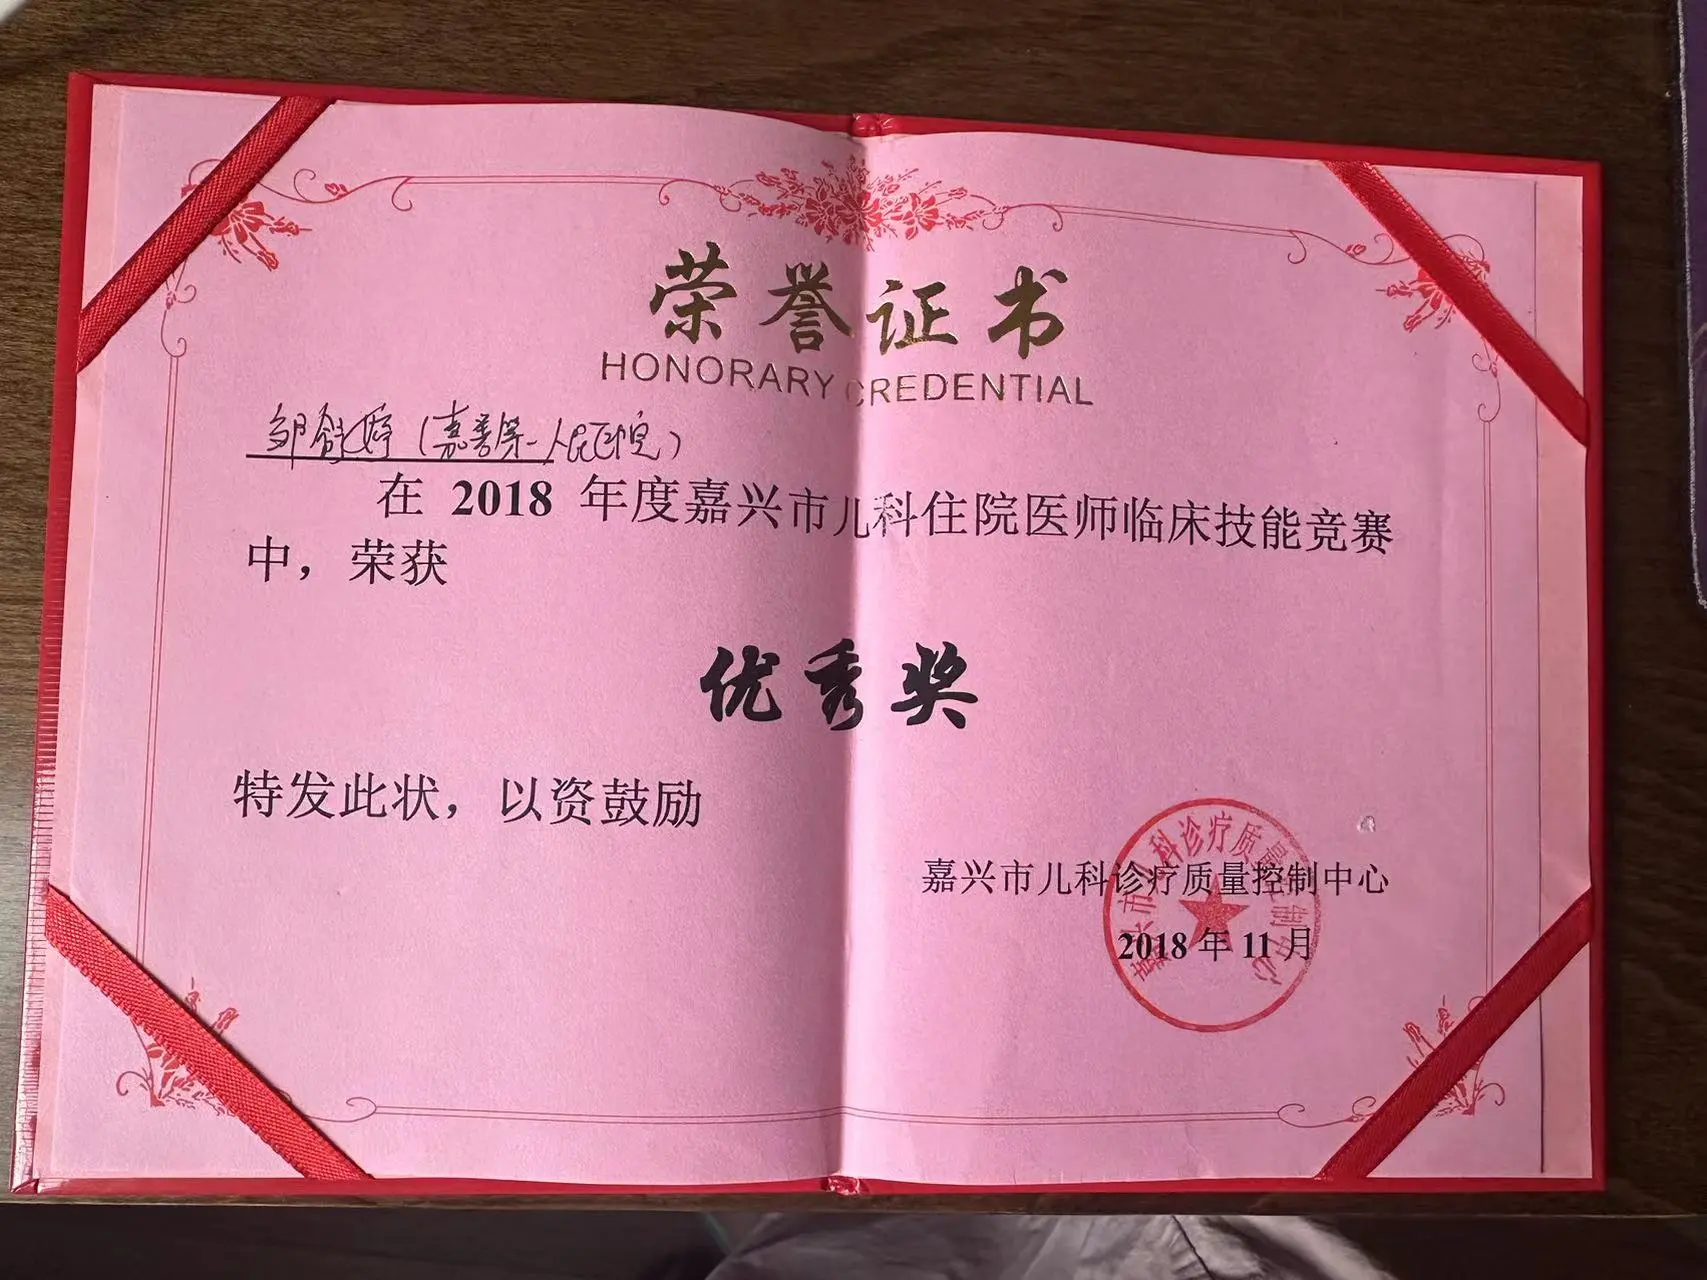 荣誉证书
HONORARY CREDENTIAL
邹舒婷（嘉善第一人民医院）
在 2018 年度嘉兴市儿科住院医师临床技能竞赛
中，荣获
优秀奖
特发此状，以资鼓励
嘉兴市儿科诊疗质量控制中心
2018 年 11 月
嘉兴市儿科诊疗质量控制中心